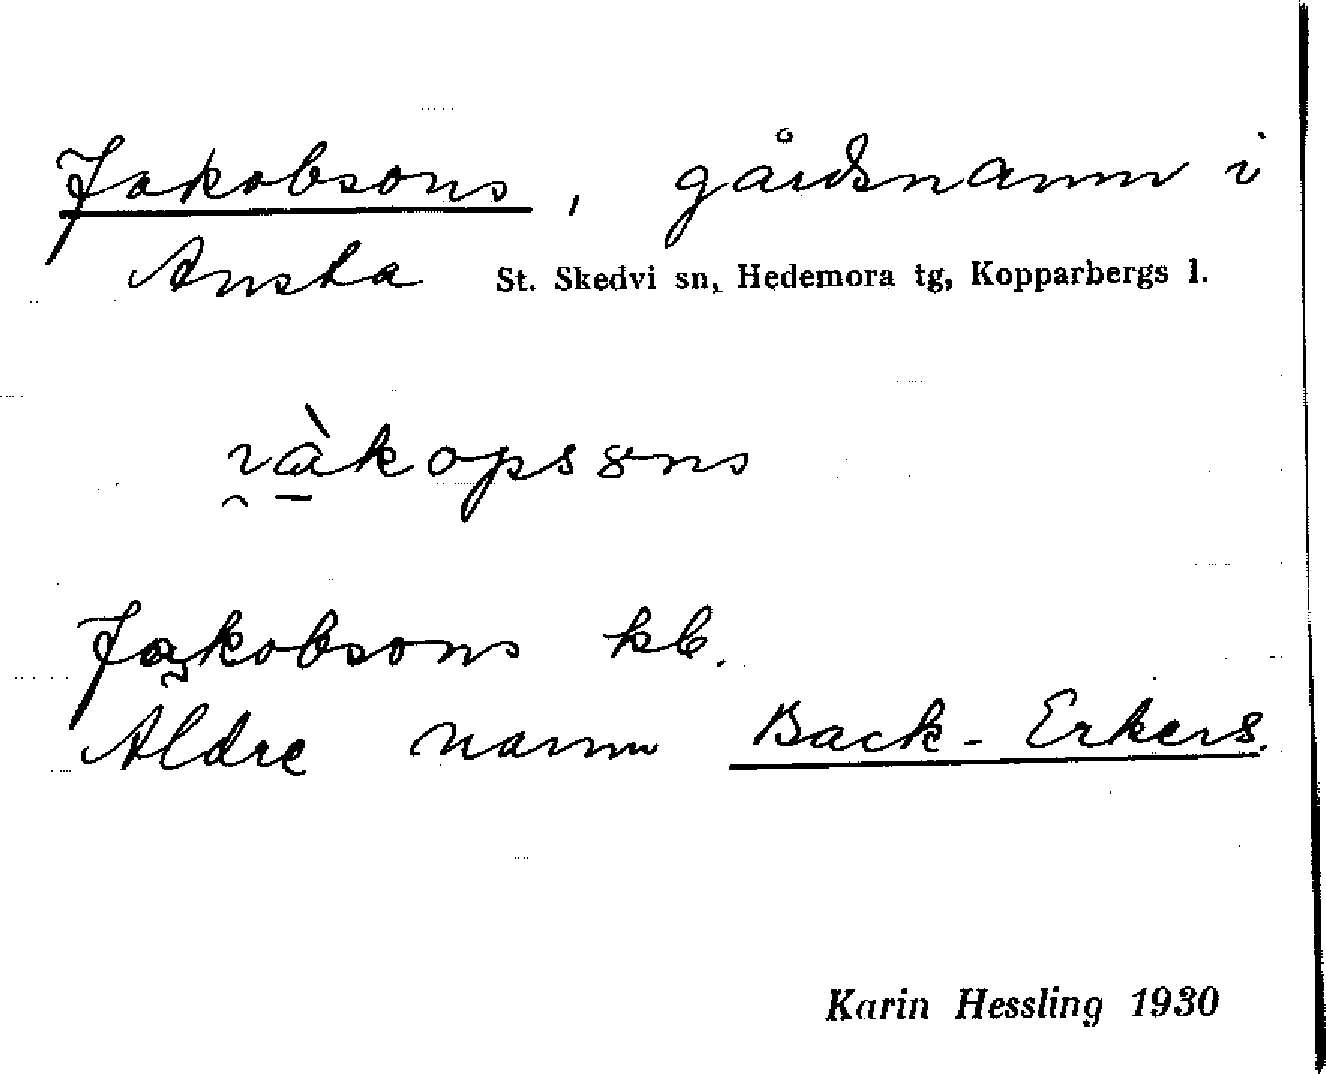 Jakobsons, gårdsnamn i
Ansta St. Skedvi sn, Hedemora tg, Kopparbergs l.
Jakobsons kb.
Äldre namn Back-Erkers.
Karin Hessling 1930